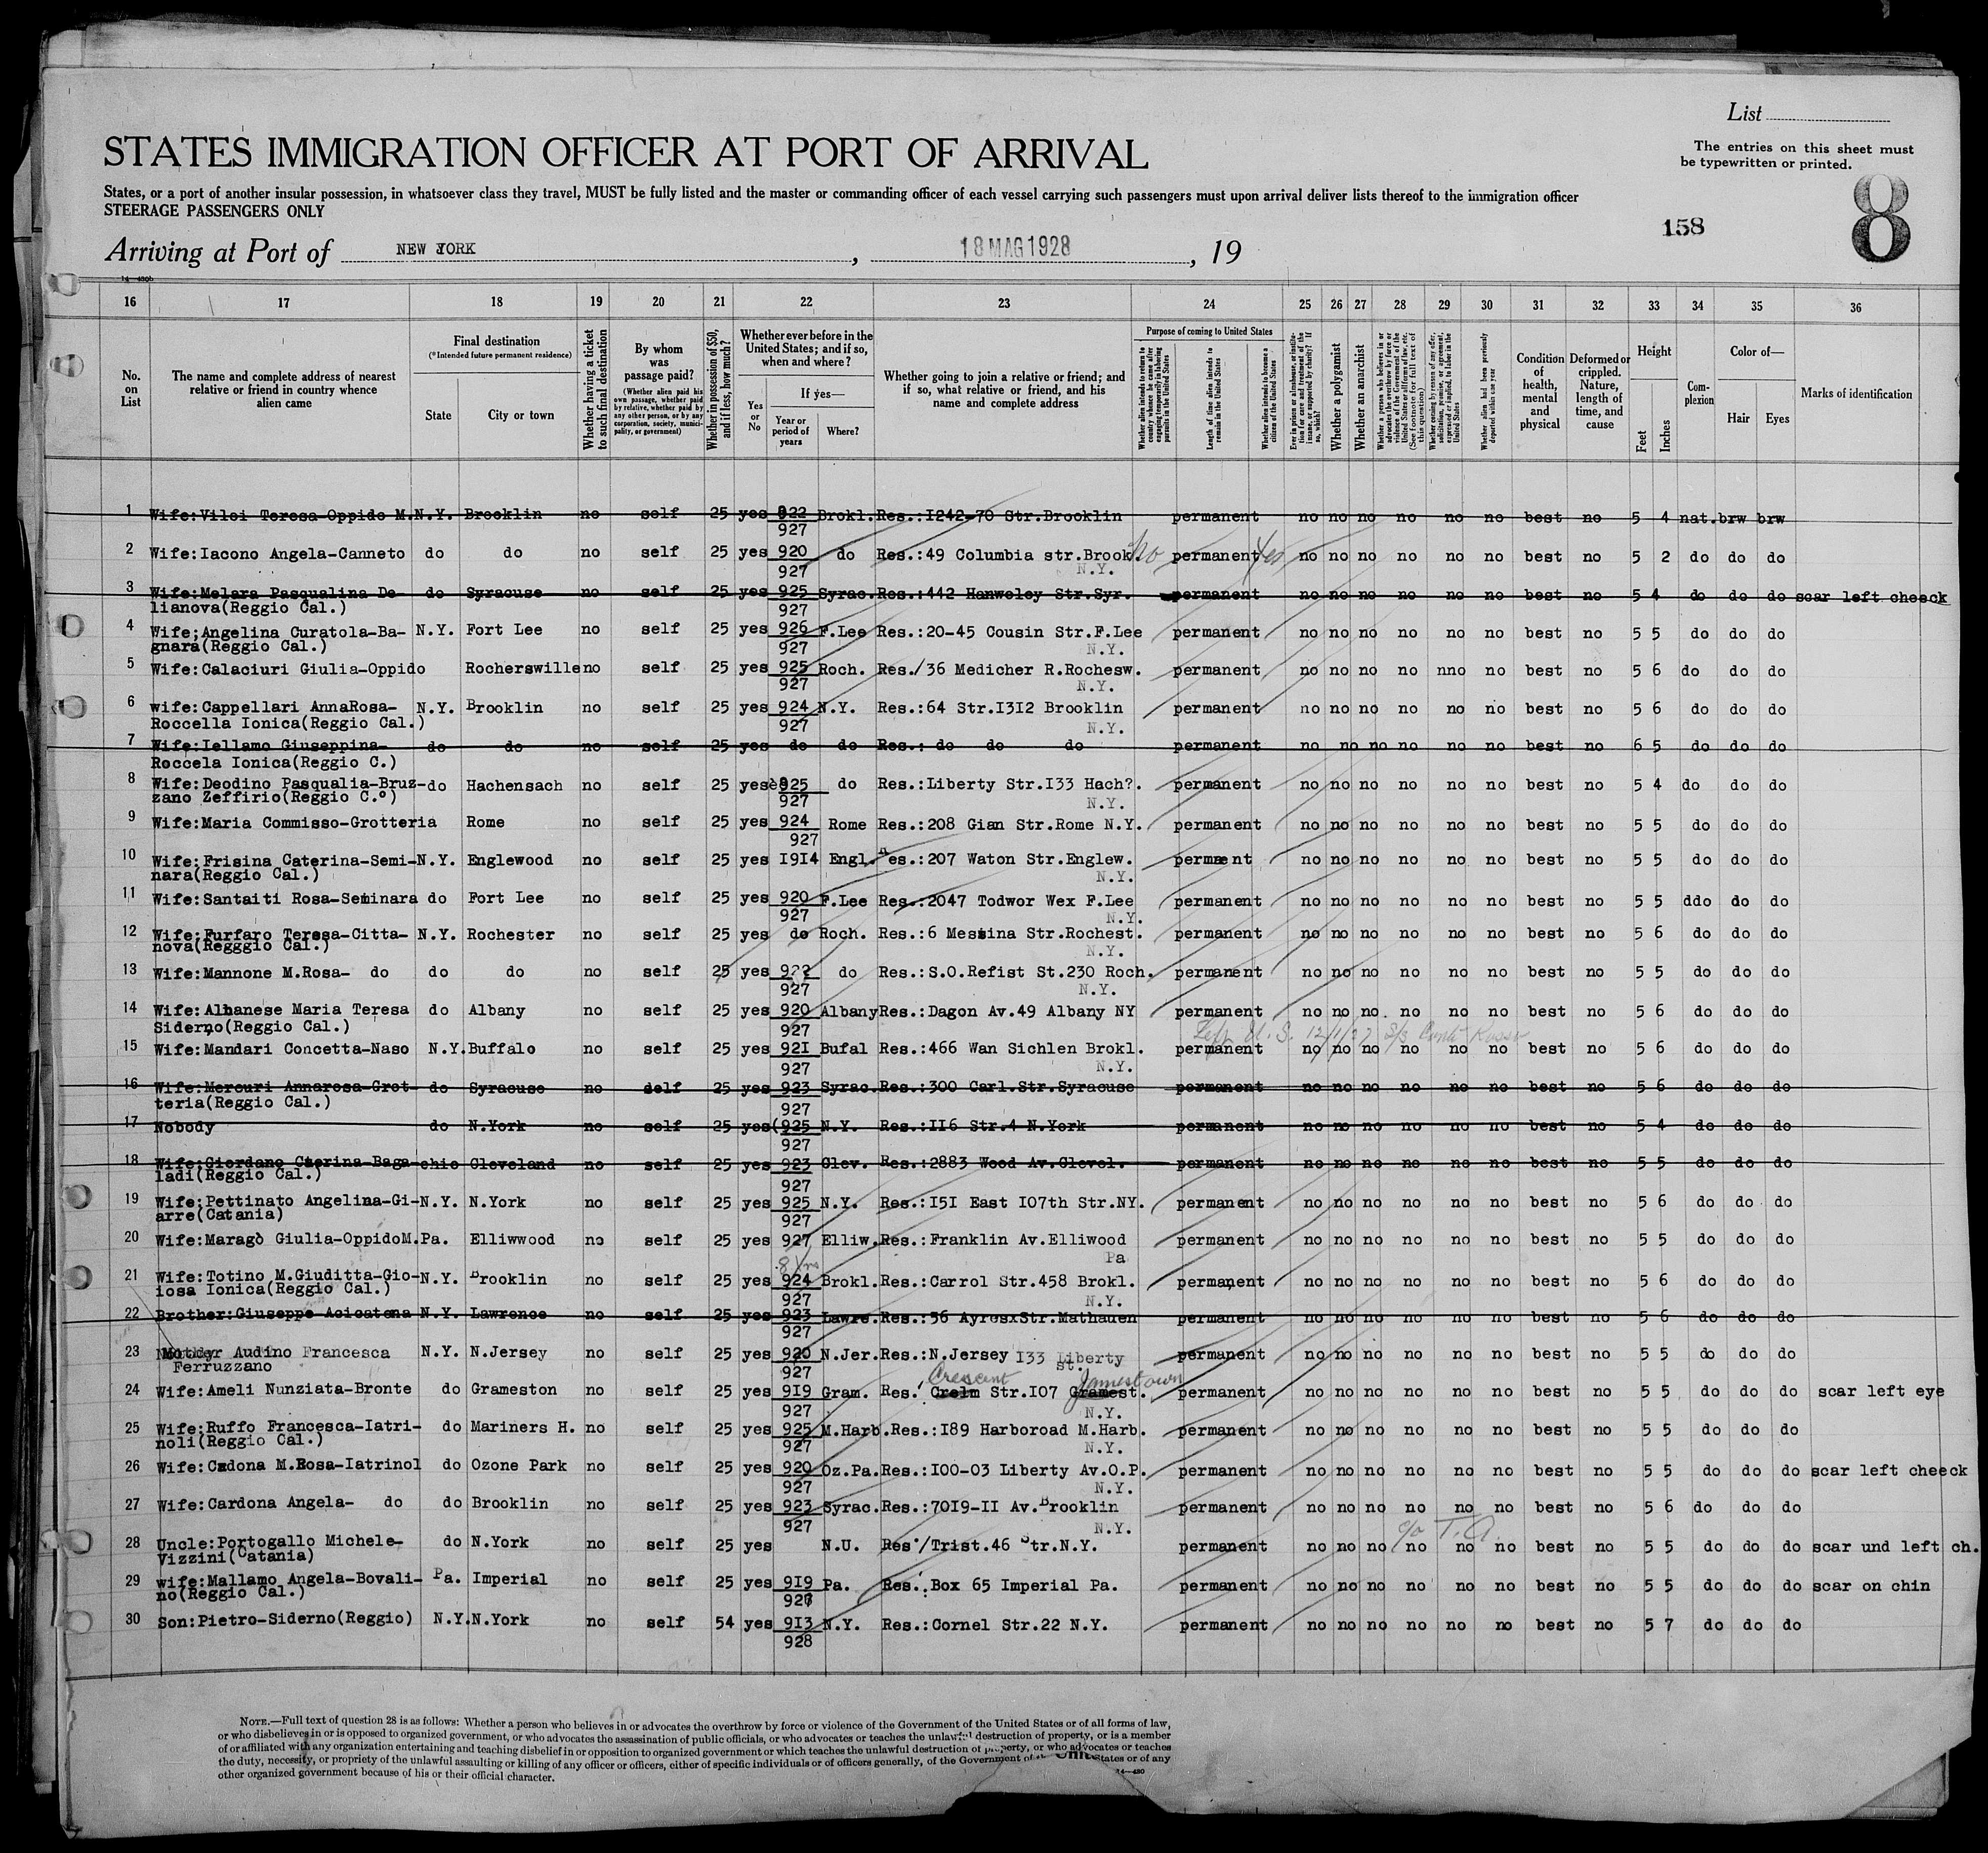 List
The entries on this sheet must
be typewritten or printed.
STATES IMMIGRATION OFFICER AT PORT OF ARRIVAL
8
States, or a port of another insular possession, in whatsoever class they travel, MUST be fully listed and the master or commanding officer of each vessel carrying such passengers must upon arrival deliver lists thereof to the immigration officer
STEERAGE PASSENGERS ONLY
158
Arriving at Port of NEW YORK, 18 MAG 1928, 19
16 17 18 19 20 21 22 23 24 25 26 27 28 29 30 31 32 33 34 35 36
No. on List
The name and complete address of nearest relative or friend in country whence alien came
Final destination
(*Intended future permanent residence)
State
City or town
Whether having a ticket to such final destination
By whom was passage paid?
(Whether alien paid his own passage, whether paid by relative, whether paid by any other person, or by any corporation, society, municipality, or government)
Whether in possession of $50, and if less, how much?
Whether ever before in the United States; and if so, when and where?
Yes or No
If yes—
Year or period of years
Where?
Whether going to join a relative or friend; and if so, what relative or friend, and his name and complete address
Purpose of coming to United States
Whether alien intends to return to country whence he came after engaging temporarily in laboring pursuits in the United States
Length of time alien intends to remain in the United States
Whether alien intends to become a citizen of the United States
Whether a polygamist
Whether an anarchist
Whether alien had been previously deported within one year
Condition of health, mental and physical
Deformed or crippled. Nature, length of time, and cause
Height
Feet
Inches
Complexion
Color of—
Hair
Eyes
Marks of identification
1 Wife:Viloi Teresa-Oppido M. N.Y. Brooklin no self 25 yes 922 Brokl. Res.:I242-70 Str.Brooklin permanent no no no no no no best no 5 4 nat. brw brw
927
2 Wife:Iacono Angela-Canneto do do no self 25 yes 920 do Res.:49 Columbia str.Brook. No permanent Yes no no no no no no best no 5 2 do do do
927 N.Y.
3 Wife:Melara Pasqualina De- do Syracuse no self 25 yes 925 Syrac. Res.:442 Hanweley Str.Syr. permanent no no no no no no best no 5 4 do do do scar left cheeck
lianova(Reggio Cal.) 927
4 Wife;Angelina Curatola-Ba- N.Y. Fort Lee no self 25 yes 926 F.Lee Res.:20-45 Cousin Str.F.Lee permanent no no no no no no best no 5 5 do do do
gnara(Reggio Cal.) 927 N.Y.
5 Wife:Calaciuri Giulia-Oppido Rocherswille no self 25 yes 925 Roch. Res./36 Medicher R.Rochesw. permanent no no no no nno no best no 5 6 do do do
927 N.Y.
6 wife:Cappellari AnnaRosa- N.Y. Brooklin no self 25 yes 924 N.Y. Res.:64 Str.I3I2 Brooklin permanent no no no no no no best no 5 6 do do do
Roccella Ionica(Reggio Cal.) 927 N.Y.
7 Wife:Iellamo Giuseppina- do do no self 25 yes do do Res.: do do do permanent no no no no no no best no 6 5 do do do
Roccela Ionica(Reggio C.)
8 Wife:Deodino Pasqualia-Bruz- do Hachensach no self 25 yes 925 do Res.:Liberty Str.I33 Hach?. permanent no no no no no no best no 5 4 do do do
zano Zeffirio(Reggio C.º) 927 N.Y.
9 Wife:Maria Commisso-Grotteria Rome no self 25 yes 924 Rome Res.:208 Gian Str.Rome N.Y. permanent no no no no no no best no 5 5 do do do
927
10 Wife:Frisina Caterina-Semi- N.Y. Englewood no self 25 yes I9I4 Engl. Res.:207 Waton Str.Englew. permanent no no no no no no best no 5 5 do do do
nara(Reggio Cal.) N.Y.
11 Wife:Santaiti Rosa-Seminara do Fort Lee no self 25 yes 920 F.Lee Res.:2047 Todwor Wex F.Lee permanent no no no no no no best no 5 5 ddo do do
927 N.Y.
12 Wife:Furfaro Teresa-Citta- N.Y. Rochester no self 25 yes do Roch. Res.:6 Messina Str.Rochest. permanent no no no no no no best no 5 6 do do do
nova(Regggio Cal.) N.Y.
13 Wife:Mannone M.Rosa- do do do no self 25 yes 922 do Res.:S.O.Refist St.230 Roch. permanent no no no no no no best no 5 5 do do do
927 N.Y.
14 Wife:Albanese Maria Teresa do Albany no self 25 yes 920 Albany Res.:Dagon Av.49 Albany NY permanent no no no no no no best no 5 6 do do do
Siderno(Reggio Cal.) 927 Left U.S. 12/1/27 S/S Conte Rosso
15 Wife:Mandari Concetta-Naso N.Y. Buffalo no self 25 yes 92I Bufal Res.:466 Wan Sichlen Brokl. permanent no no no no no no best no 5 6 do do do
927 N.Y.
16 Wife:Mercuri Annarosa-Grot- do Syracuse no delf 25 yes 923 Syrac. Res.:300 Carl.Str.Syracuse permanent no no no no no no best no 5 6 do do do
teria(Reggio Cal.) 927
17 Nobody do N.York no self 25 yes (925 N.Y. Res.:II6 Str.4 N.York permanent no no no no no no best no 5 4 do do do
927
18 Wife:Giordano Cterina-Baga- ohio Cleveland no self 25 yes 923 Clev. Res.:2883 Wood Av.Clevel. permanent no no no no no no best no 5 5 do do do
ladi(Reggio Cal.) 927
19 Wife:Pettinato Angelina-Gi- N.Y. N.York no self 25 yes 925 N.Y. Res.:I5I East I07th Str.NY. permanent no no no no no no best no 5 6 do do do
arre(Catania) 927
20 Wife:Maragò Giulia-OppidoM. Pa. Elliwwood no self 25 yes 927 Elliw. Res.:Franklin Av.Elliwood permanent no no no no no no best no 5 5 do do do
8 yrs Pa
21 Wife:Totino M.Giuditta-Gio- N.Y. Brooklin no self 25 yes 924 Brokl. Res.:Carrol Str.458 Brokl. permanent no no no no no no best no 5 6 do do do
iosa Ionica(Reggio Cal.) 927 N.Y.
22 Brother:Giuseppe Acicatena N.Y. Lawrence no self 25 yes 923 Lawre. Res.:56 AyresxStr.Mathauen permanent no no no no no no best no 5 6 do do do
927
23 Mother Audino Francesca N.Y. N.Jersey no self 25 yes 920 N.Jer. Res.:N.Jersey I33 Liberty permanent no no no no no no best no 5 5 do do do
Ferruzzano 927 St.
Crescent Jamestown
24 Wife:Ameli Nunziata-Bronte do Grameston no self 25 yes 9I9 Gram. Res. Crelm Str.I07 Gramest. permanent no no no no no no best no 5 5 do do do scar left eye
927 N.Y.
25 Wife:Ruffo Francesca-Iatri- do Mariners H. no self 25 yes 925 M.Harb. Res.:I89 Harboroad M.Harb. permanent no no no no no no best no 5 5 do do do
noli(Reggio Cal.) 927 N.Y.
26 Wife:Cadona M.Rosa-Iatrinol do Ozone Park no self 25 yes 920 Oz.Pa. Res.:I00-03 Liberty Av.O.P. permanent no no no no no no best no 5 5 do do do scar left cheeck
927 N.Y.
27 Wife:Cardona Angela- do do Brooklin no self 25 yes 923 Syrac. Res.:70I9-II Av.Brooklin permanent no no no no no no best no 5 6 do do do
927 N.Y. c/o T.A.
28 Uncle:Portogallo Michele- do N.York no self 25 yes N.U. Res'/Trist.46 Str.N.Y. permanent no no no no no no best no 5 5 do do do scar und left ch.
Vizzini(Catania)
29 wife:Mallamo Angela-Bovali- Pa. Imperial no self 25 yes 9I9 Pa. Res.:Box 65 Imperial Pa. permanent no no no no no no best no 5 5 do do do scar on chin
no(Reggio Cal.) 927
30 Son:Pietro-Siderno(Reggio) N.Y. N.York no self 54 yes 9I3 N.Y. Res.:Cornel Str.22 N.Y. permanent no no no no no no best no 5 7 do do do
928
NOTE.—Full text of question 28 is as follows: Whether a person who believes in or advocates the overthrow by force or violence of the Government of the United States or of all forms of law,
or who disbelieves in or is opposed to organized government, or who advocates the assassination of public officials, or who advocates or teaches the unlawful destruction of property, or is a member
of or affiliated with any organization entertaining and teaching disbelief in or opposition to organized government or which teaches the unlawful destruction of property, or who advocates or teaches
the duty, necessity, or propriety of the unlawful assaulting or killing of any officer or officers, either of specific individuals or of officers generally, of the Government of the United States or of any
other organized government because of his or their official character.
14—480